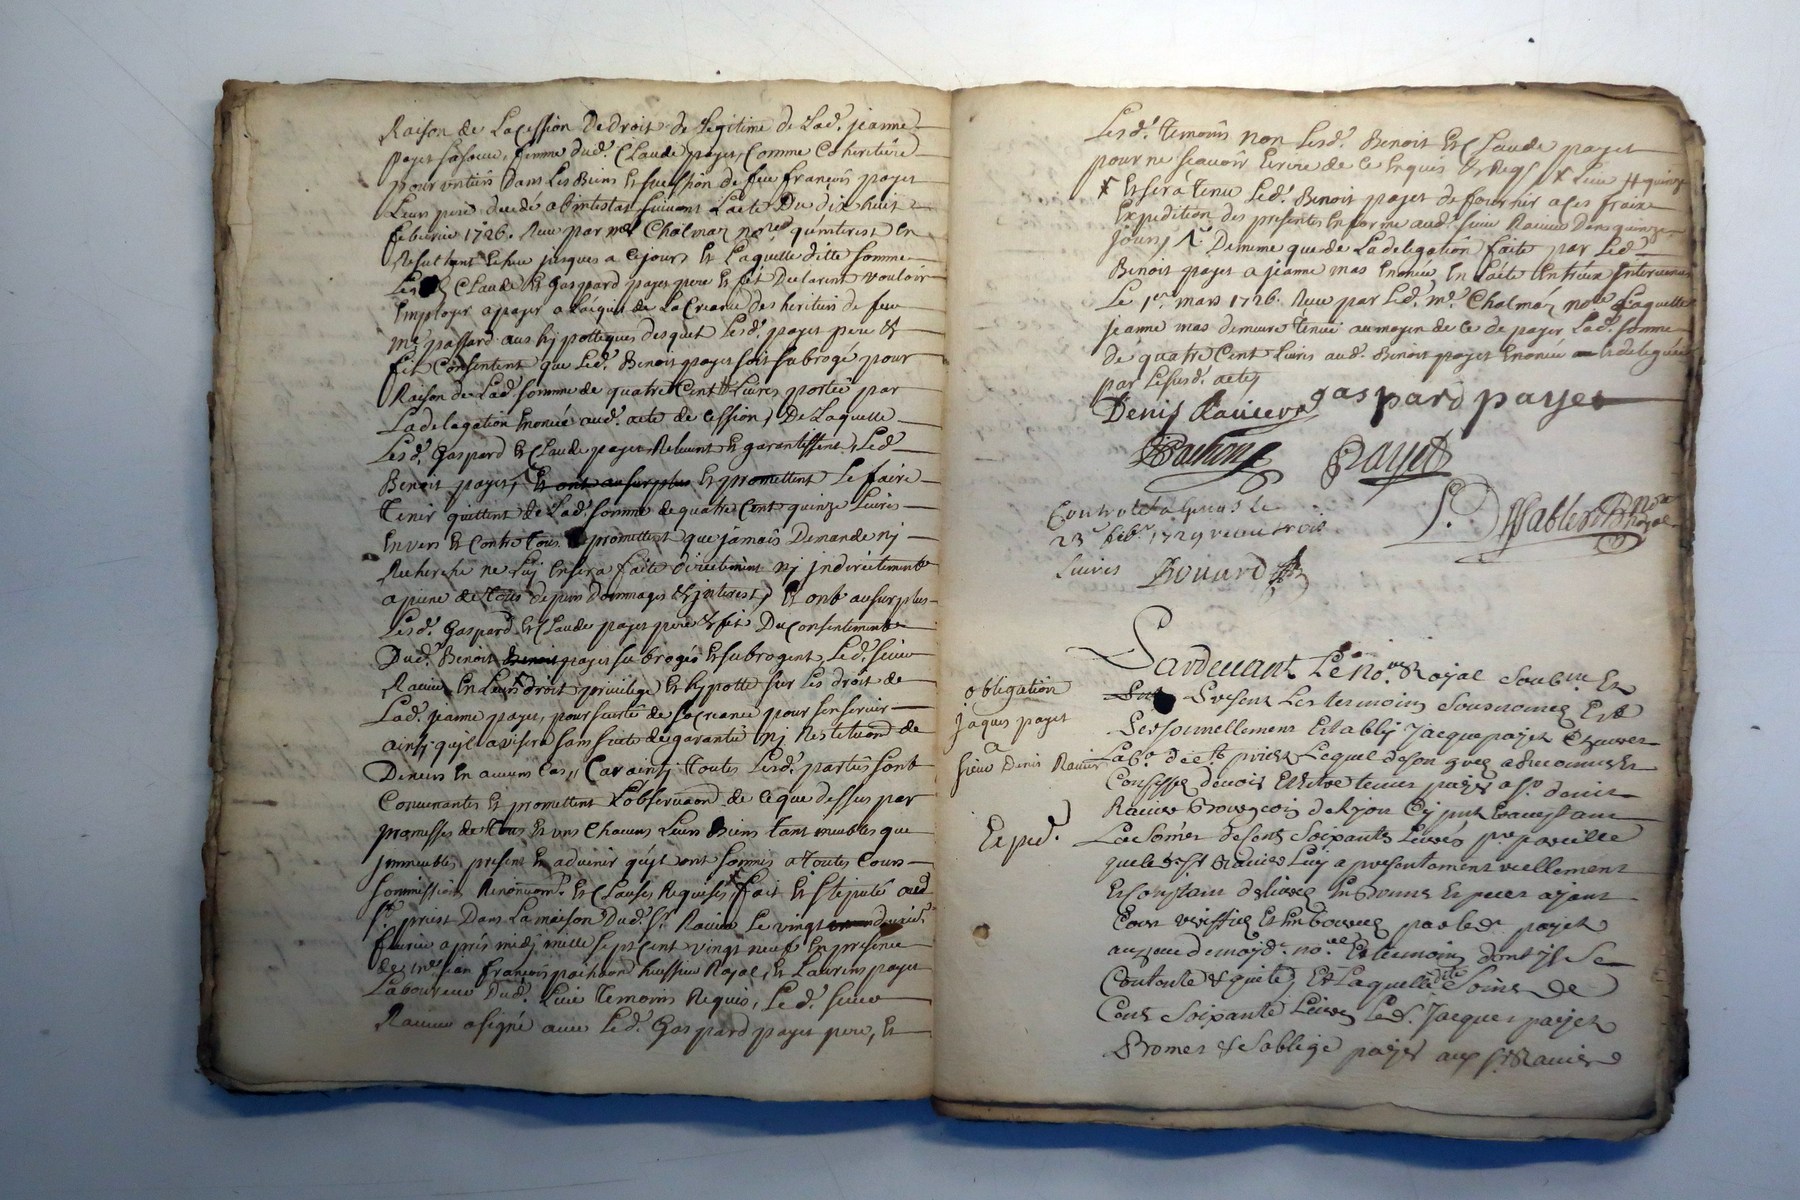 Raison de La Cession De droit de Legitime de Lad.e jeanne
payet sa soeur, femme dud. Claude payet, Comme Coheritiere
pour un tiers Dans Les Biens et sucession de feu françois payet
Leur pere decedé abintestat suivant Lacte Du dix huit
febvrier 1726. Receu par me Chalmaz no.re
Resultant Echeu jusques a cejour, Et Laquelle ditte somme
Les Claude Et Gaspard payet pere Et fils Declarent vouloir
Employer a payer a Lacquit de La Creance des heritiers de feu
me passard aux hippotteques desquels Lesd. payet pere &
fils Consentent que Led. Benoit payet soit subrogé pour
Raison de Lad. somme de quatre Cent Livres portée par
La delegation Enoncée aud. acte de Cession, De Laquelle
Lesd. Gaspard Et Claude payet Relevent Et garantissent Led.
Benoit payet, Et ont au surplus Et promettent Le faire
Tenir quitte de Lad. somme de quatre Cent quinze Livres
Envers Et Contre Tous promettent que jamais Demande nj
Recherche ne Luy Ensera faite directement nj jndirectement
a peine de Tous depens dommages & jnterest, Et ont au surplus
Lesd. Gaspard Et Claude payet pere & fils Du Consentement
Dud. Benoit Benoit payet subrogés Et subrogent, Led. sieur
Ravier En Leurs droit privilege Et hypotte sur Les droit de
Lad. jeanne payet, pour seureté de sa Creance pour sen servir
ainsj quil avisera sans suite de garantie nj Restitution de
Deniers En aucun Cas, Car ainsj Toutes Lesd. parties sont
Convenantes Et promettent Lobservaon de Ce que dessus par
promesses de Tous Et uns Chacuns Leurs Biens Tant meubles que
jmmeubles, present Et advenir quejls ont soumis a Toutes Cours
sommissions Renonciaons Et Clauses Requises fait Et stipulé aud.
st. priest Dans La maison Dud. sr. Ravier Le vingt
fevrier aprés midj mille sept Cent vingt neuf En presence
de me jean françois pachoud huissier Royal, Et Laurens payet
Laboureur Dud. Lieu Temoins Requis, Led. sieur
Ravier a signé avec Led. Gaspard payet pere, Et
Lesd. Temoins non Lesd. Benoit Et Claude payet
pour ne sçavoir Ecrire de Ce Enquis Et Req.
Et sera Tenu Led. Benoit payet de fournir a ses fraix
Expedition des presentes En forme aud. sieur Ravier Dans quinze
jours, De meme que de La delegation faite par Led.
Benoit payet a jeanne mas Enoncée En Lacte
Le 1er mars 1726. Receu par Led. me. Chalmaz no.re Laquelle
jeanne mas demeure Tenue au moyen de Ce de payer Lad. somme
de quatre Cent Livres aud. Benoit payet Enoncée a deleguée
par Lesusd. acte,
Denis Ravier gaspard payet
Pachoud Payet
Controllé a le
23e feb. 1729 receu trois
Livres Bouard
Pardevant Le no.re Royal Soub.ne Et
Present Les temoins Sousnomes Est
obligation
Personnellement Etably Jacque payet
Jaques payet
a
Lab.r de st. priest Lequel de son gre a Reconnu Et
sieur Denis Ravier
Confesse devoir Et Estre tenus payer a sr. denis
Ravier Bourgeois de Lyon Cy p.nt Et acceptant
Exped.
La some de Cent Soixante Livres pr. pareille
que le d. sr. Ravier Luy a presentement reellement
Et Contant delivre En Bonne Espece ayant
Cour veriffiee Et Emboursee par led. payet
au veu de moyd. no.re Et temoins dont jl se
Contante & quite, Et Laquelle dite Some de
Cent Soixante Livres Led. Jacques payet
Promet & soblige payer aud. sr. Ravier